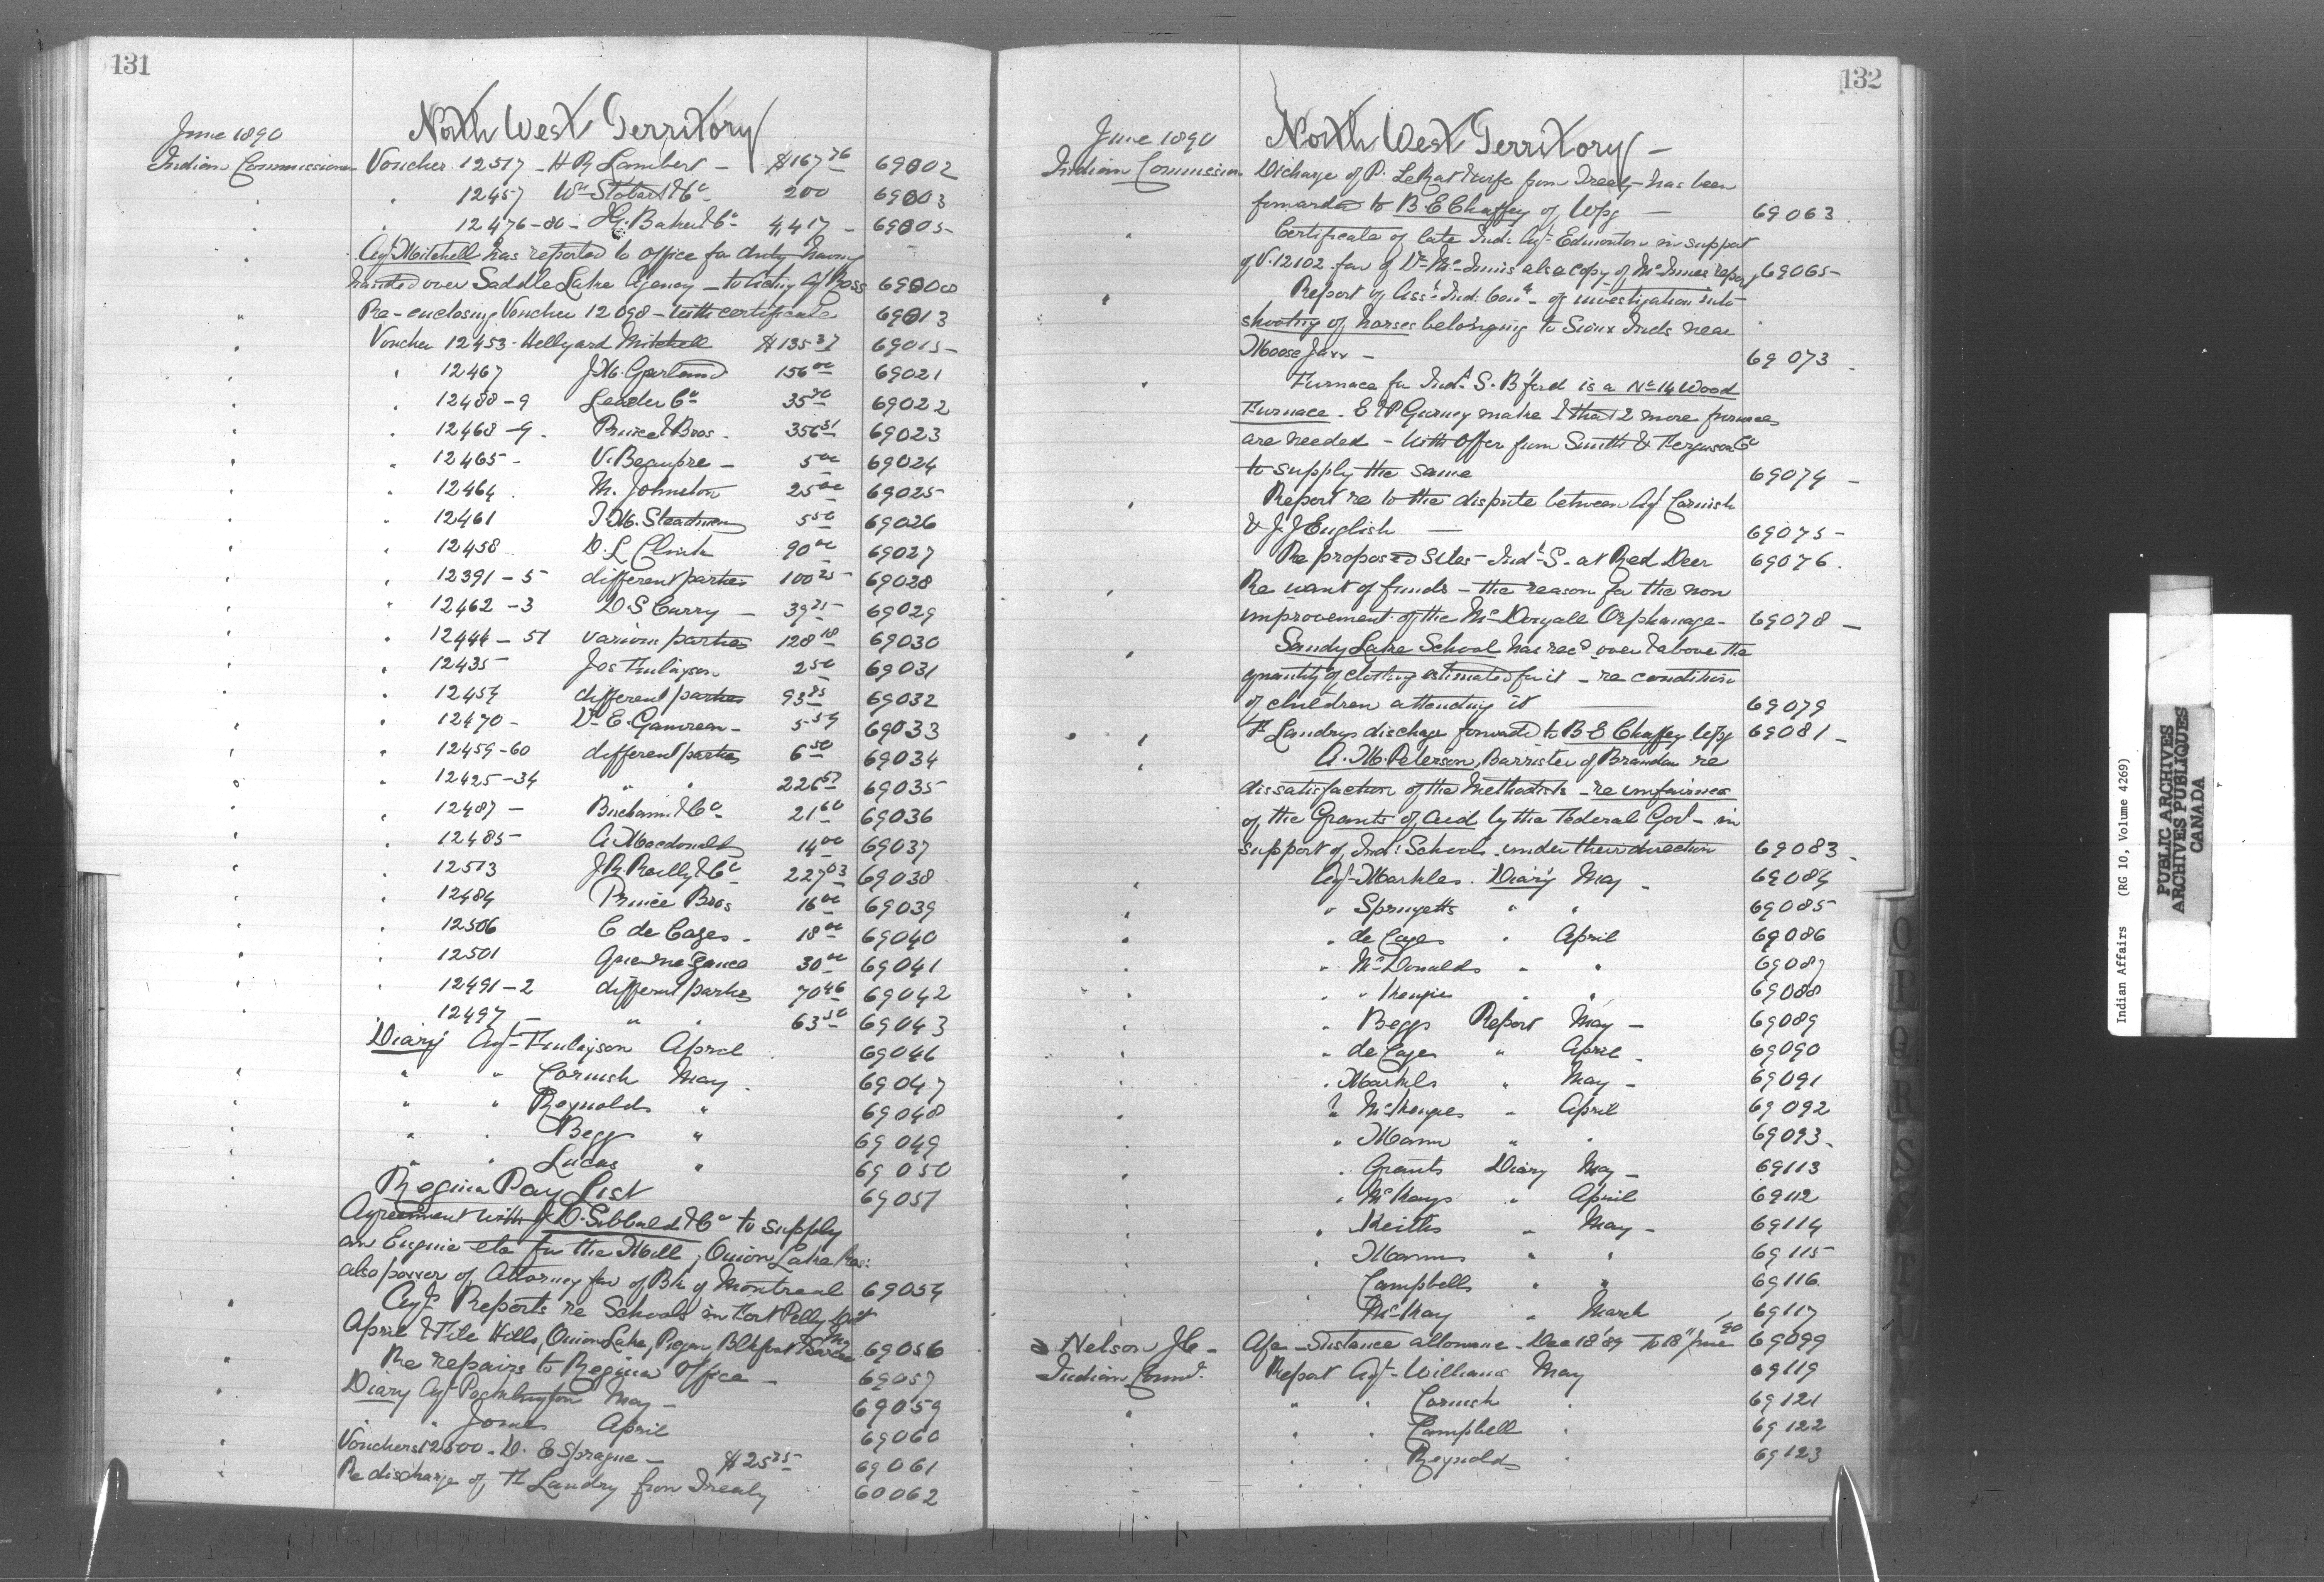 131
North West Territory
June 1890
Indian Commissioner Voucher 12517 - H R Lambert - $167 76 69002
" 12457 Wm Stobart & Co 200 69003
" 12476-80 - Baker & Co 4,417 - 69005
Agt Mitchell has reported to office for duty having
handed over Saddle Lake Agency - to Actg Agt Ross 69008
Re-enclosing Voucher 12098 - with certificate 69013
Voucher 12453 - Hellyard Mitchell $135 37 69015
" 12467 J.M. Garland 156 00 69021
" 12488-9 Leader Co 35 69022
" 12468-9 Prince Bros. 356 31 69023
" 12465 - V. Beaupre - 5 00 69024
" 12464 M. Johnston 25 00 69025
" 12461 Steadman 5 50 69026
" 12458 D.L. Clink 90 00 69027
" 12391-5 different parties 100 25 69028
" 12462-3 D.S Curry - 39 69029
" 12444-51 various parties 128 18 69030
" 12435 Jos Finlayson 2 50 69031
" 12454 different parties 93 69032
" 12470 - 5 69033
" 12459-60 different parties 6 50 69034
" 12425-34 " " 226 57 69035
" 12487 - Buchanan & Co 21 60 69036
" 12485 A. Macdonald 14 00 69037
" 12513 J.R. Reilly & Co 227 03 69038
" 12484 Prince Bros 16 00 69039
" 12506 C de Cazes - 18 00 69040
" 12501 30 00 69041
" 12491-2 different parties 70 46 69042
" 12497 - " " 63 50 69043
Diary Agt Finlayson April 69046
" " Cornish May 69047
" " Reynolds " 69048
" " Begg " 69049
" " Lucas " 69050
Regina Pay List 69051
Agreement with J.D. Sibbald & Co to supply
an Engine etc for the Mill, Onion Lake Res:
also power of Attorney fav of Bk of Montreal 69054
Agts Reports re Schools in Fort Pelly Dist
April & File Hills, Onion Lake, Piegan, Blkfoot 69056
Re repairs to Regina Office - 69057
Diary Agt Pocklington May - 69059
" " Jones April 69060
Vouchers 12500 - D. E Sprague - $25 25 69061
Re discharge of Landry from Treaty 60062
132
North West Territory -
June 1890
Indian Commission Discharge of P. LeRat & wife from Treaty has been
forwarded to B E Chaffey of Wpg - 69063
Certificate of late Ind: Agt Edmonton in support
of V. 12102 fav of Dr McInnis also copy of McInnes report 69065
Report of Asst Ind: Comr - of investigation into
shooting of horses belonging to Sioux Inds near
Moose Jaw - 69073
Furnace for Indl S. B'ford is a No 14 Wood
Furnace. E & P Gurney make & that 2 more furnaces
are needed - with offer from Smith & Ferguson Co
to supply the same 69074
Report re to the dispute between Agt Cornish
& J.J English 69075
Re proposed sites - Indl S. at Red Deer 69076
Re want of funds - the reason for the non
improvement of the McDougall Orphanage - 69078
Sandy Lake School has recd over & above the
quantity of clothing estimated for it - re condition
of children attending it 69079
Landrys discharge forwarded to B E Chaffey Wpg 69081
A. M. Peterson, Barrister of Brandon re
dissatisfaction of the Methodists - re unfairness
of the Grants of aid by the Federal Govt - in
support of Ind: Schools under their direction 69083
Agt Markles Diary May - 69084
" Sprugetts " " 69085
" de Cazes " April 69086
" McDonalds " " 69087
" " " " 69088
" Beggs Report May - 69089
" de Cazes " April 69090
" Markles " May - 69091
" " April 69092
" Mann " " 69093
" Grants Diary May - 69113
" McKays " April 69112
" Keiths " May - 69114
" Manns " " 69115
" Campbells " " 69116
" McKay " March 69117
Nelson J.C. - Afc - Sistance allowance - Dec 18 '89 to 18th June '90 69099
Indian Commr Report Agt Williams May 69119
" " Cornish " 69121
" " Campbell " 69122
" " Reynolds " 69123
O
P
Q
R
S
T
U
Indian Affairs (RG 10, Volume 4269)
PUBLIC ARCHIVES
ARCHIVES PUBLIQUES
CANADA